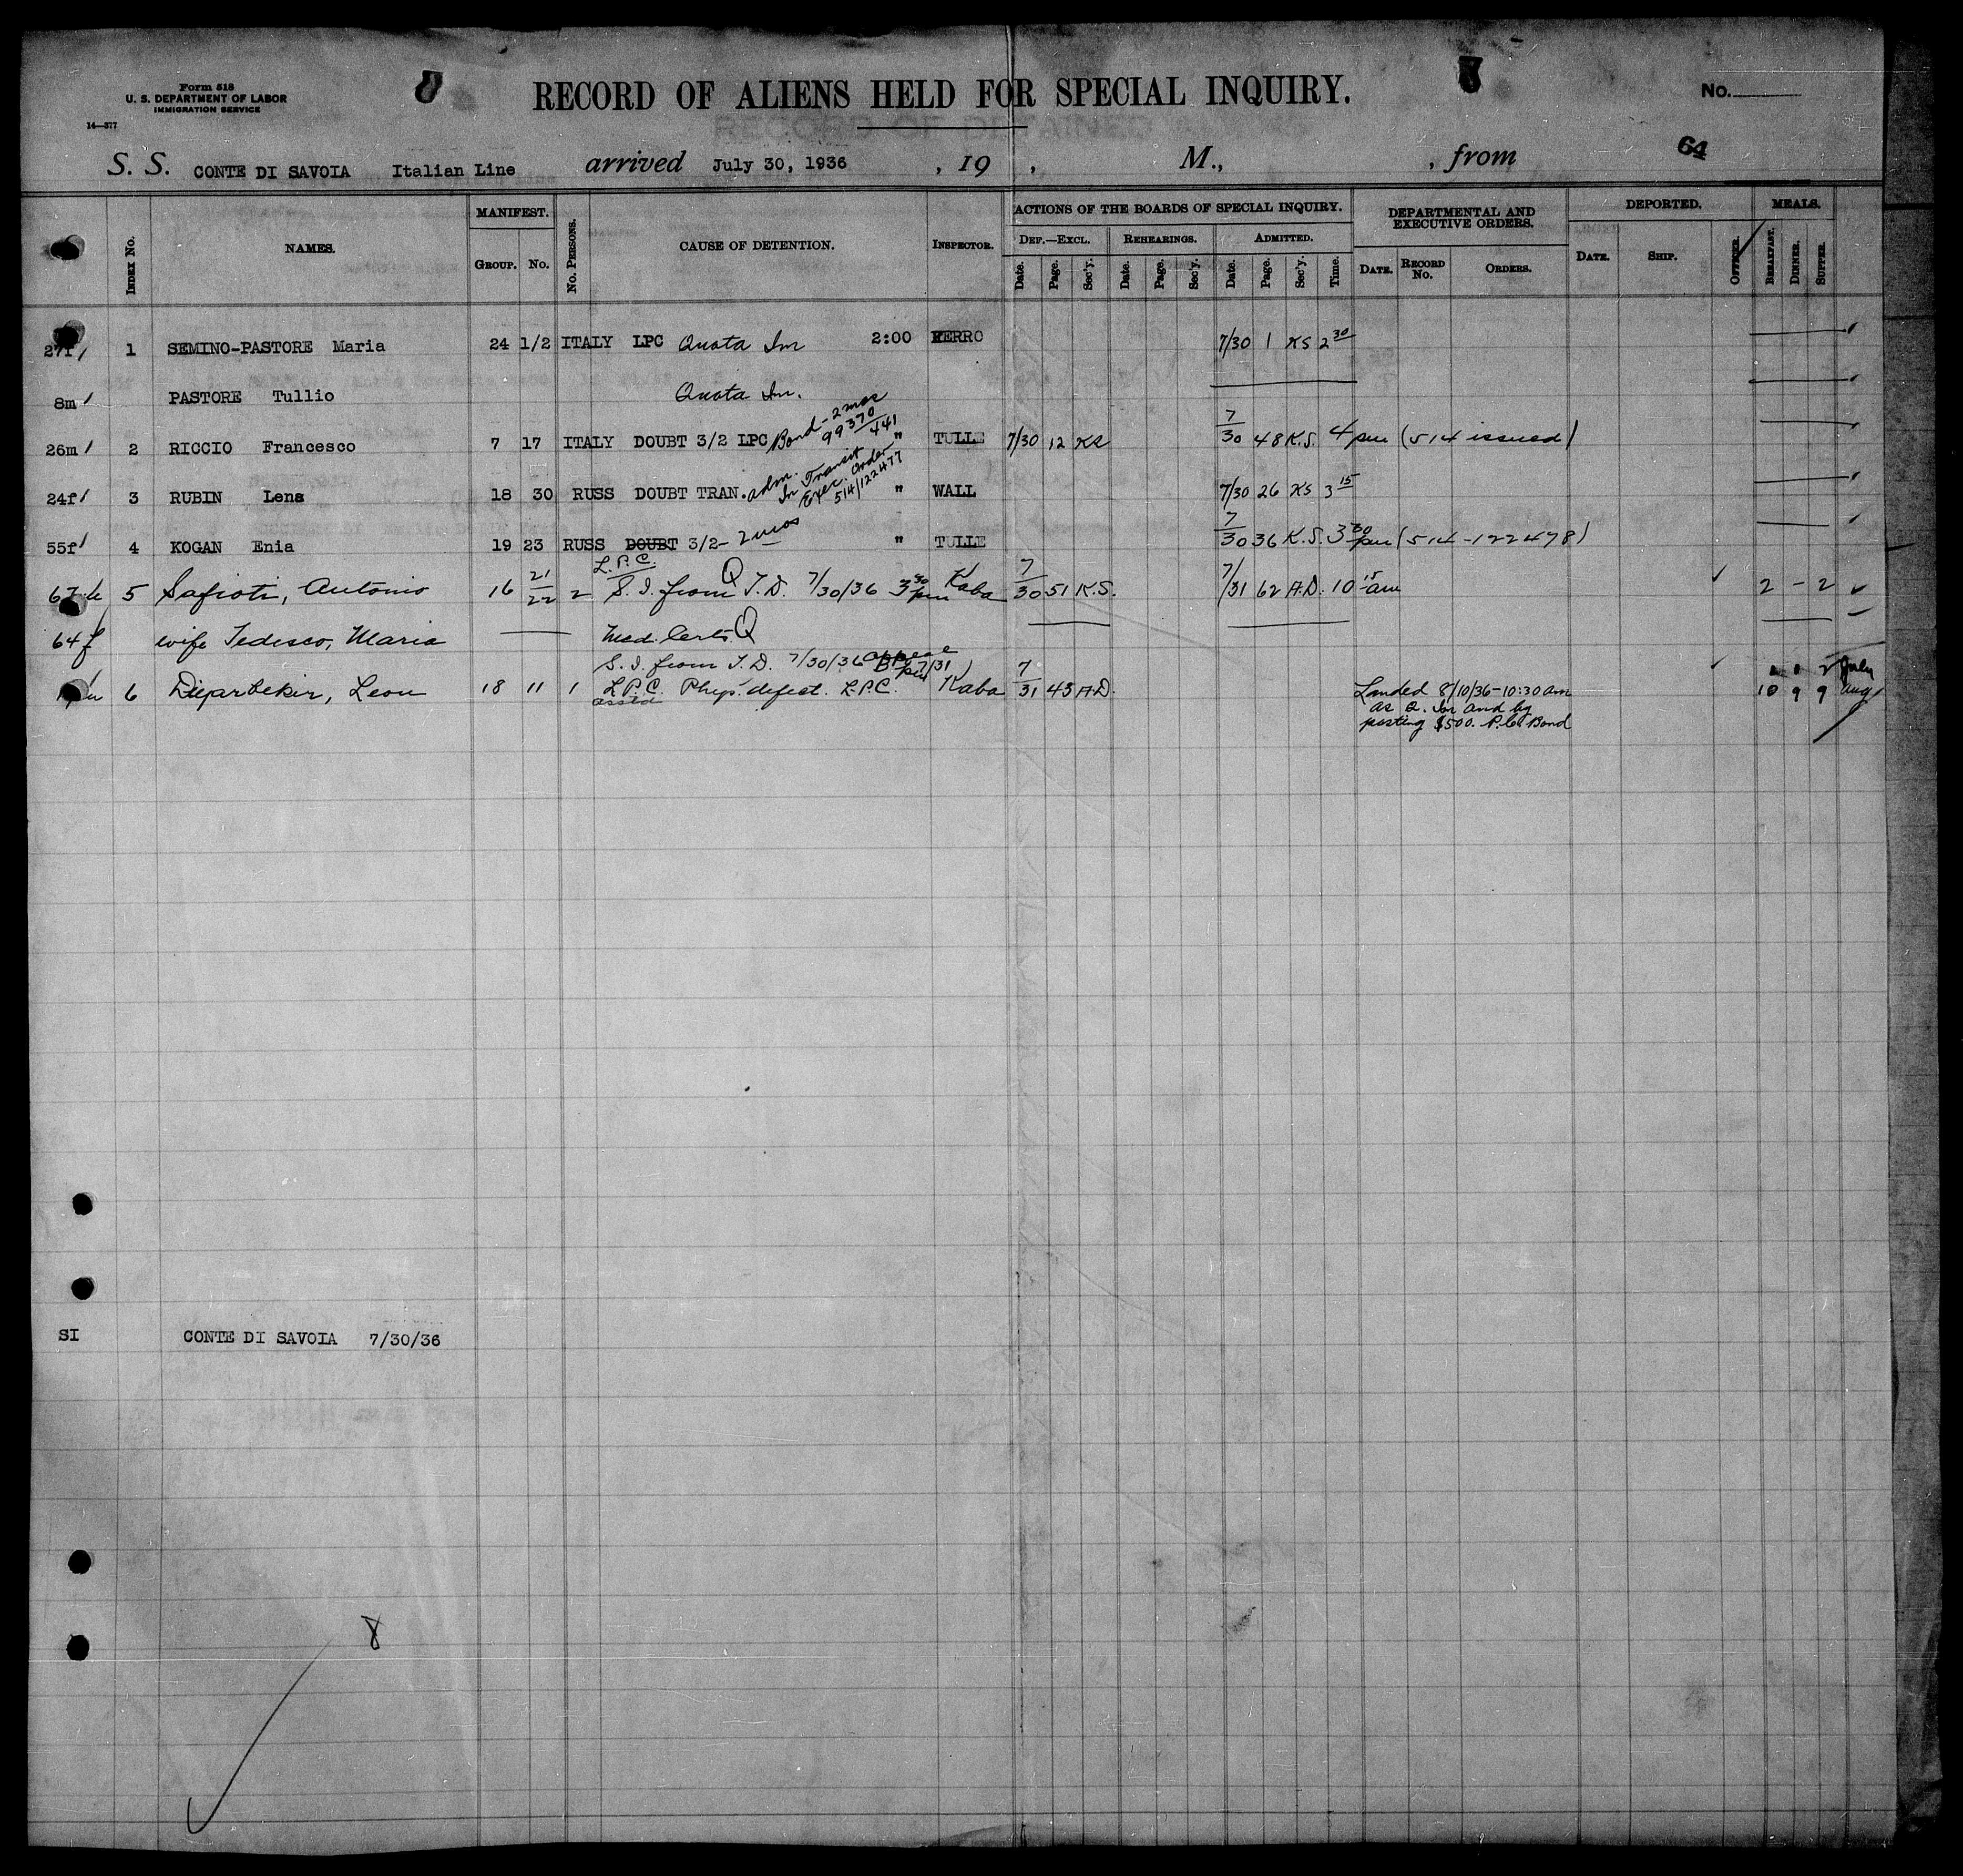 Form 518
U. S. DEPARTMENT OF LABOR
IMMIGRATION SERVICE
14—377
RECORD OF ALIENS HELD FOR SPECIAL INQUIRY.
No.
64
S. S. CONTE DI SAVOIA Italian Line arrived July 30, 1936 , 19 , M., , from
INDEX No. NAMES. MANIFEST. GROUP. No. No. PERSONS. CAUSE OF DETENTION. INSPECTOR. ACTIONS OF THE BOARDS OF SPECIAL INQUIRY. DEF.—EXCL. Date. Page. Sec'y. REHEARINGS. Date. Page. Sec'y. ADMITTED. Date. Page. Sec'y. Time. DEPARTMENTAL AND EXECUTIVE ORDERS. DATE. RECORD No. ORDERS. DEPORTED. DATE. SHIP. OFFICER. MEALS. BREAKFAST. DINNER. SUPPER.
27f 1 SEMINO-PASTORE Maria 24 1/2 ITALY LPC Quota Im 2:00 FERRO 7/30 1 KS 2 30
8m PASTORE Tullio Quota Im.
26m 2 RICCIO Francesco 7 17 ITALY DOUBT 3/2 LPC Bond - 2 mos 99370/441 " TULLE 7/30 12 KS 7/30 48 K.S. 4 pm (514 issued)
24f 3 RUBIN Lena 18 30 RUSS DOUBT TRAN. adm. In Transit Exec. Order 514/122477 " WALL 7/30 26 KS 3 15
55f 4 KOGAN Enia 19 23 RUSS DOUBT 3/2- 2 mos " TULLE 7/30 36 K.S. 3 30 pm (514-122478)
L.P.C.
5 Safioti, Antonio 16 21/22 2 S.I. from T.D. Q 7/30/36 3 30 pm Kaba 7/30 51 K.S. 7/31 62 A.D. 10 15 am 2 - 2
64 f wife Tedesco, Maria Med. Certs Q
S.I. from T.D. 7/30/36 7/31
6 Diyarbekir, Leon 18 11 1 L.P.C. Phys. defect. L.P.C. Kaba 7/31 43 A.D. Landed 8/10/36-10:30 am 10 9 9 Aug
as Q. Im and by
posting $500. P.C. Bond
July
SI CONTE DI SAVOIA 7/30/36
8